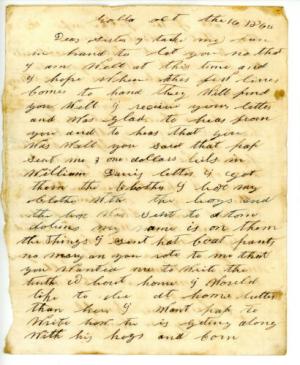 oct the 16 18
Dear Sister I take my pen
in hand to let you no that
I am Well at this time and
I hope When thes few lines
Comes to hand they Will find
you Well I receive your letter
and Was glad to hear from
you and to hear that you
Was Well you Said that pap
Sent me one dollars bils in
William Davis letter I got
them the Clothes I got my
Clothe With the boys and
the box Was Sent to
my name is on them
the things I Sent hat Coat pants
no Mary an you rote to me that
you wanted me to Write the
truth bout home I Would
like to die at home better
than here I Want pap to
Write how he is geting along
With his hogs and Corn